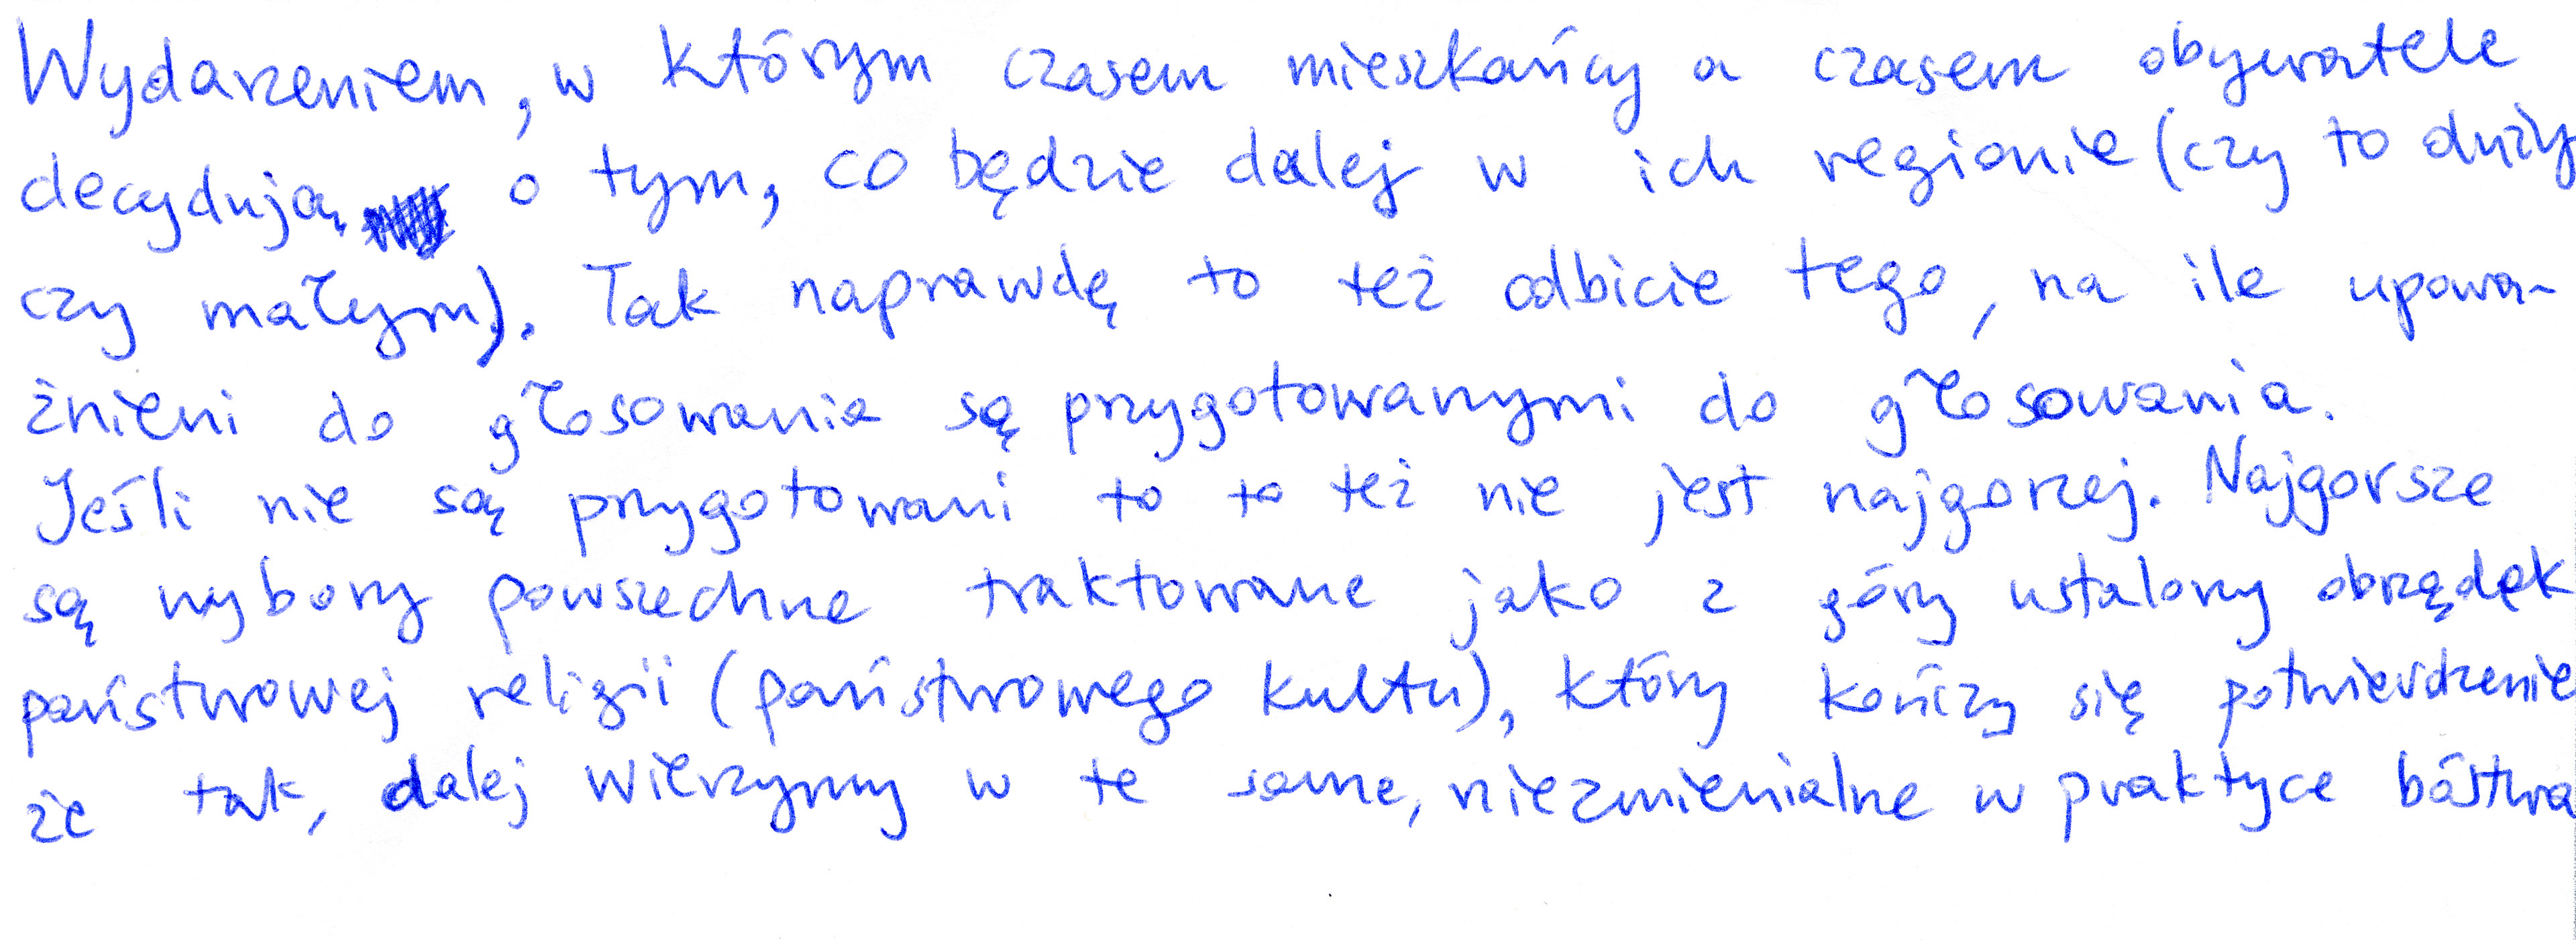 Wydarzeniem, w którym czasem mieszkańcy a czasem obywatele
decydują o tym, co będzie dalej w ich regionie (czy to duży
czy małym). Tak naprawdę to też odbicie tego, na ile upowa-
żnieni do głosowania są przygotowanymi do głosowania.
Jeśli nie są przygotowani to to też nie jest najgorzej. Najgorsze
są wybory powszechne traktowane jako z góry ustalony obrządek
państwowej religii (państwowego kultu), który kończy się potwierdzenie
że tak, dalej wierzymy w te same, niezmienialne w praktyce bóstwa